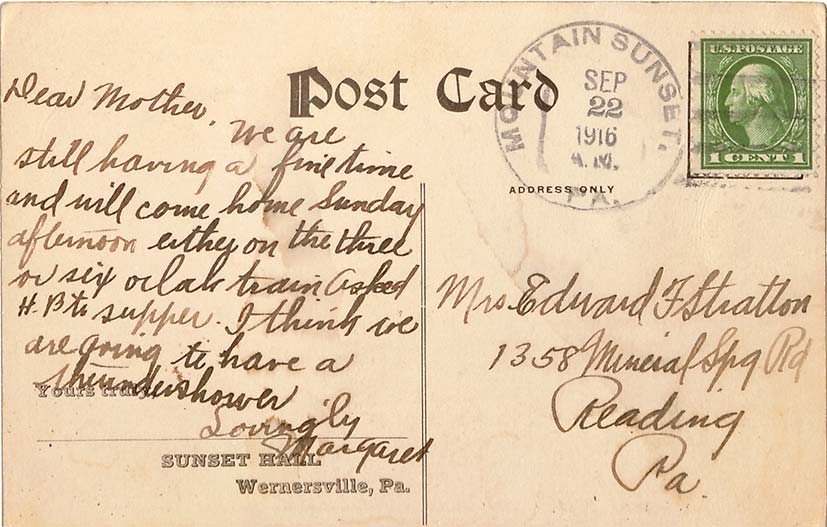 Post Card
ADDRESS ONLY
MOUNTAIN SUNSET,
PA.
SEP
22
1916
A.M.
U.S. POSTAGE
1 CENT 1
Dear Mother, We are
still having a fine time
and will come home Sunday
afternoon either on the three
or six oclok train Asked
H. B to supper. I think we
are going to have a
thundershower
Lovingly
Margaret
Yours truly
SUNSET HALL
Wernersville, Pa.
Mrs Edward F Stratton
1358 Mineral Spg Rd
Reading
Pa.